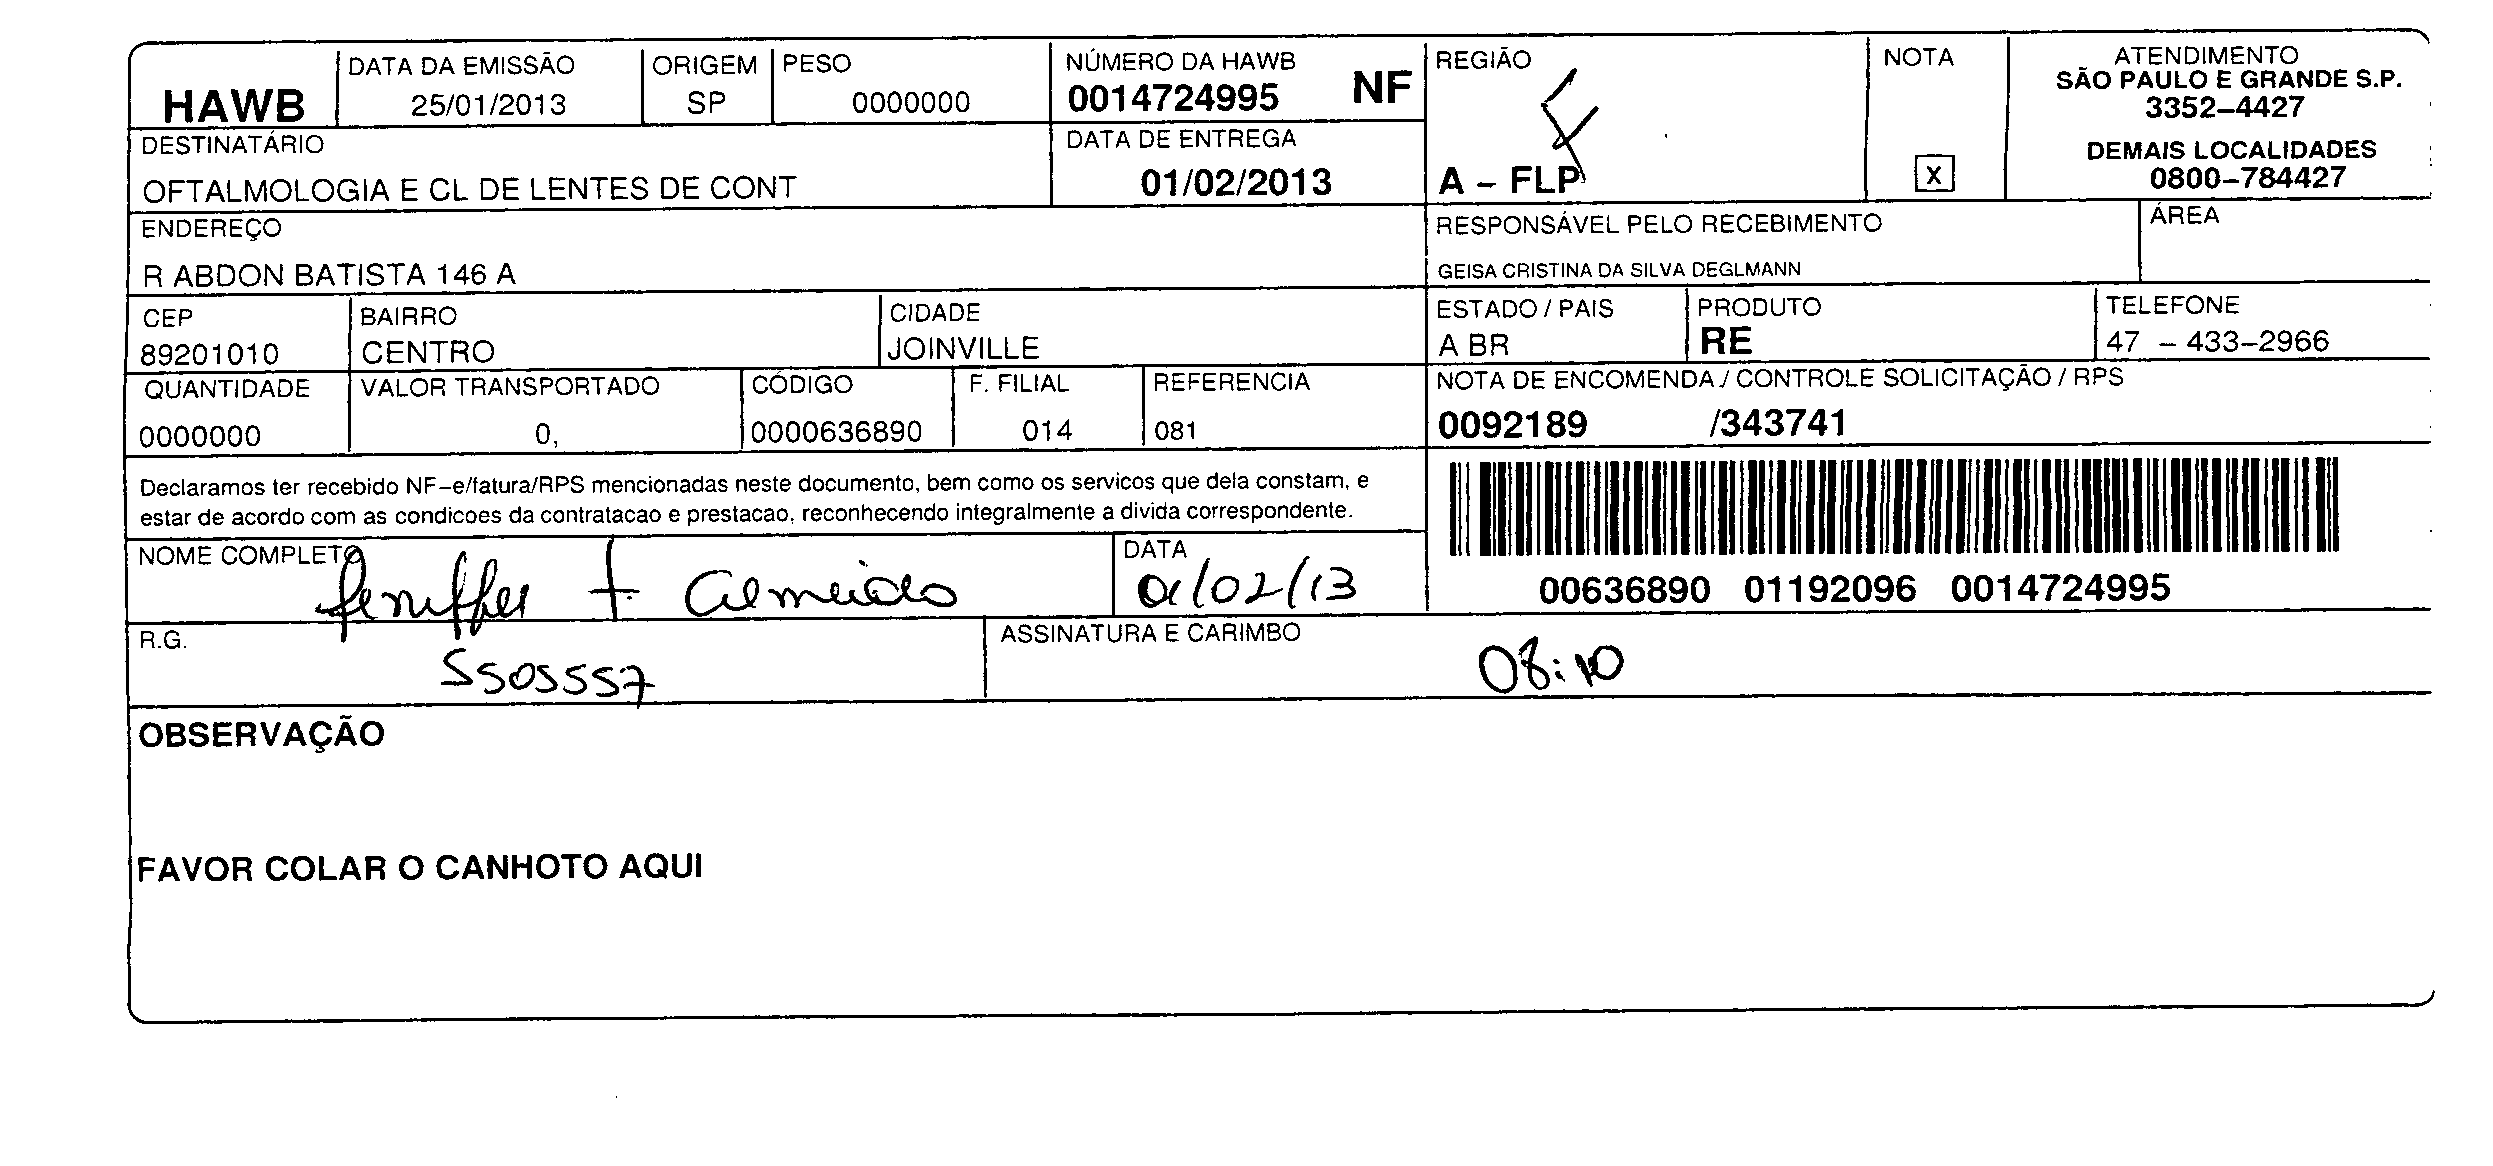 HAWB
DATA DA EMISSÃO
25/01/2013
ORIGEM
SP
PESO
0000000
NÚMERO DA HAWB
0014724995 NF
REGIÃO
A – FLP
NOTA
X
ATENDIMENTO
SÃO PAULO E GRANDE S.P.
3352–4427
DEMAIS LOCALIDADES
0800–784427
DESTINATÁRIO
OFTALMOLOGIA E CL DE LENTES DE CONT
DATA DE ENTREGA
01/02/2013
ENDEREÇO
R ABDON BATISTA 146 A
RESPONSÁVEL PELO RECEBIMENTO
GEISA CRISTINA DA SILVA DEGLMANN
ÁREA
CEP
89201010
BAIRRO
CENTRO
CIDADE
JOINVILLE
ESTADO / PAIS
A BR
PRODUTO
RE
TELEFONE
47 – 433–2966
QUANTIDADE
0000000
VALOR TRANSPORTADO
0,
CÓDIGO
0000636890
F. FILIAL
014
REFERENCIA
081
NOTA DE ENCOMENDA / CONTROLE SOLICITAÇÃO / RPS
0092189 /343741
Declaramos ter recebido NF–e/fatura/RPS mencionadas neste documento, bem como os servicos que dela constam, e
estar de acordo com as condicoes da contratacao e prestacao, reconhecendo integralmente a divida correspondente.
00636890 01192096 0014724995
NOME COMPLETO
Jeniffer F. Almeida
DATA
01/02/13
R.G.
5505557
ASSINATURA E CARIMBO
08:10
OBSERVAÇÃO
FAVOR COLAR O CANHOTO AQUI